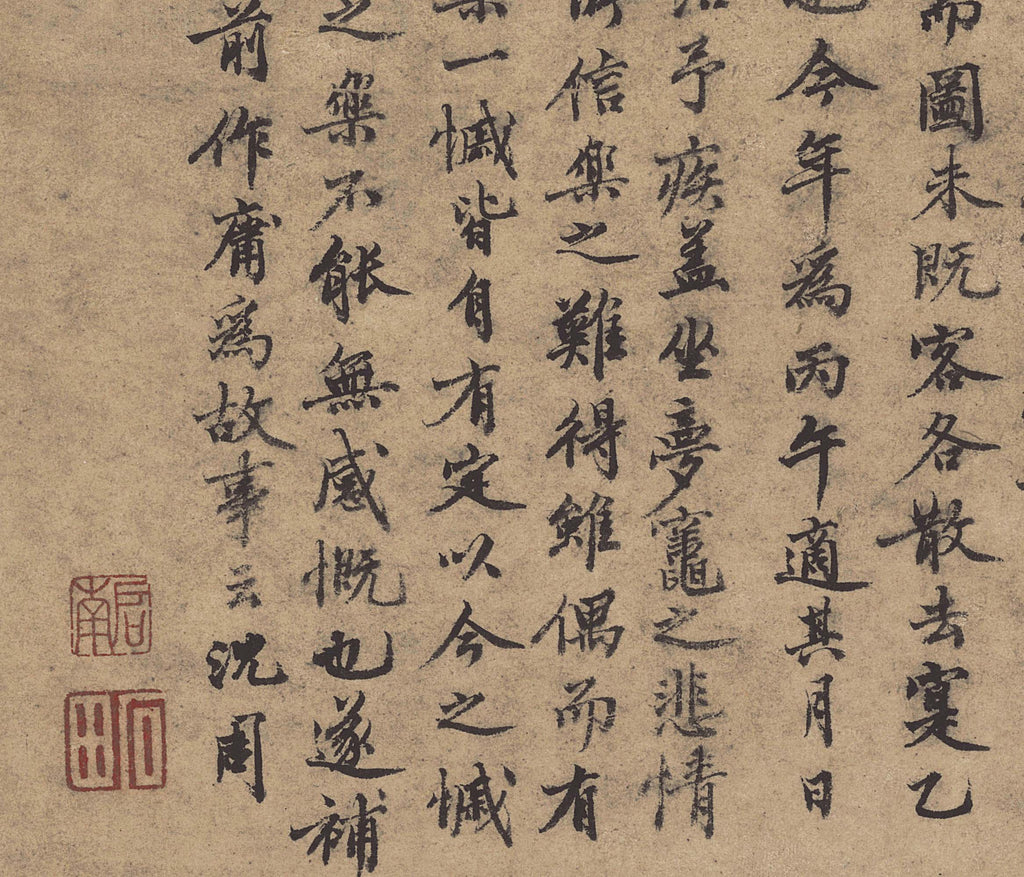 而圖未既客各散去寔乙
今年為丙午適其月日
予疾盖坐夢竈之悲情
信樂之難得雖偶而有
樂一慽皆自有定以今之慽
之樂不能無感慨也遂補
前作庸為故事云沈周
启南
石田